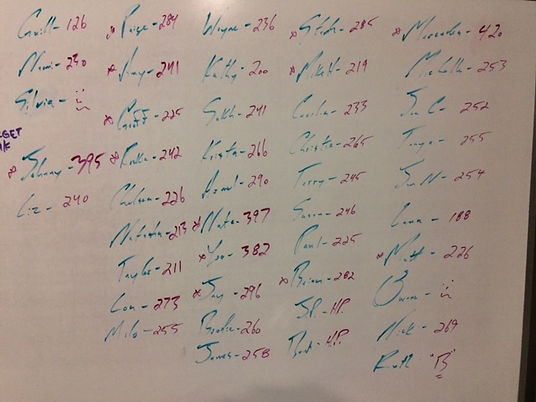 Cavill - 126
Nomi - 230
Silvia - ::
GET
* Johnny - 395
Liz - 240
* Paige - 284
* Amy - 241
* Geoff - 225
* 242
Chelsea - 226
Natasha - 213
Taylor - 211
Lon - 273
Milo - 255
Wayne - 236
Kathy - 200
241
Krista - 266
290
* Nate - 397
* 382
* Jay - 296
Brooke - 260
James - 258
* Steph - 285
* 219
Cecilia - 233
Christa - 265
Terry - 245
246
Paul - 225
* Brian - 282
JP. - H.P.
H.P.
* Mercedes - 420
Michelle - 253
Sue C - 252
Tonya - 255
Sue N - 254
188
* Matt - 226
Owen - ::
Nick - 269
Ruth "B"